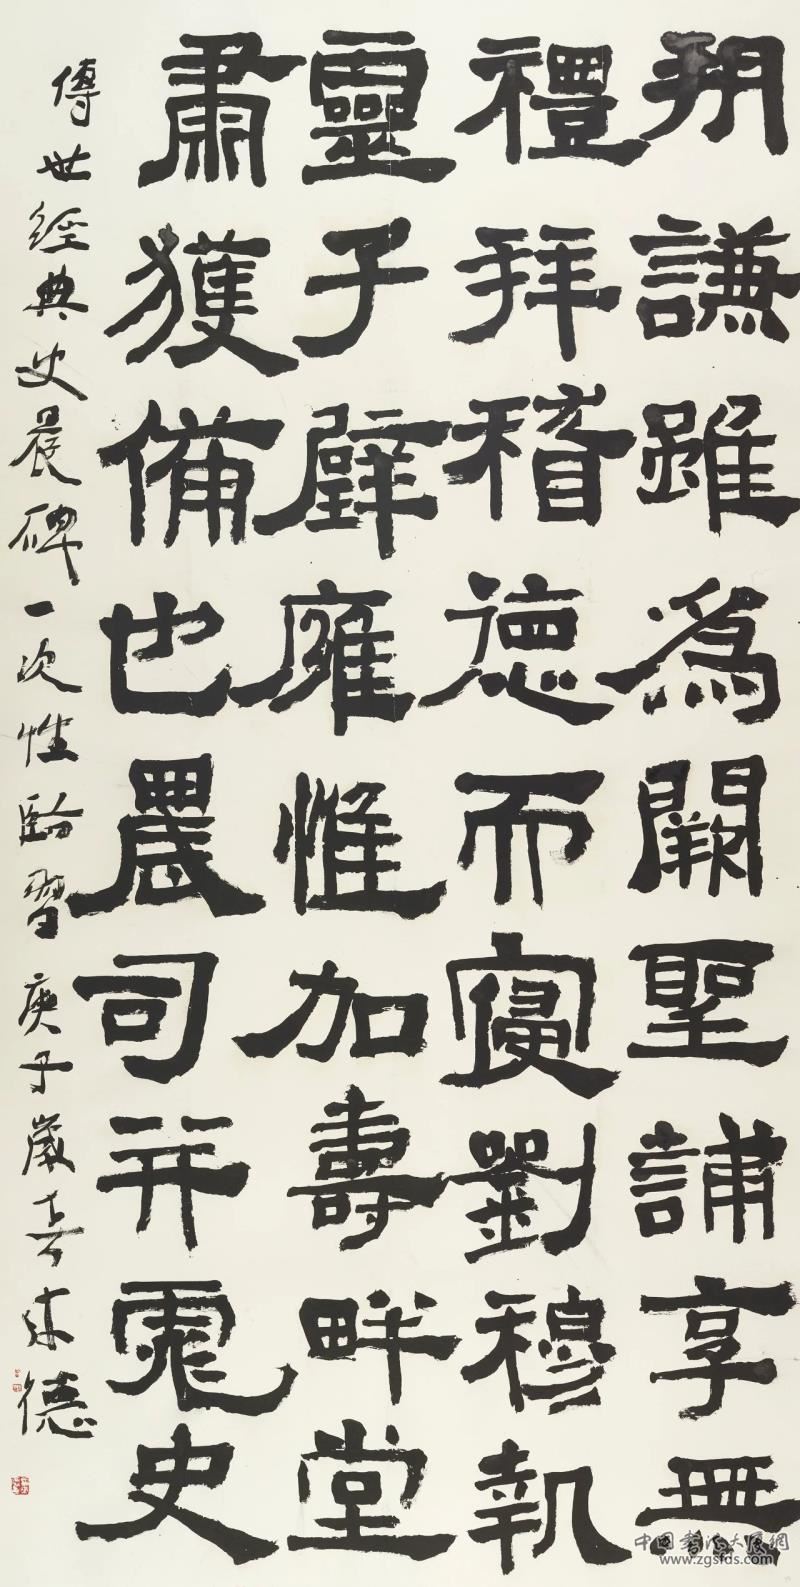 朔謙雖為闕聖誦享無
禮拜稽德而寢劉穆執
靈子辟雍惟加壽畔堂
肅獲備也農司并霓史
傳世經典史晨碑一次性臨習庚子歲
德
中国书法大展網
www.zgsfds.com